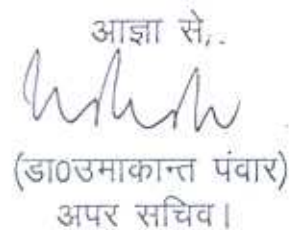 आज्ञा से,.
(डा0उमाकान्त पंवार)
अपर सचिव।